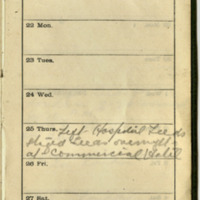 22 Mon.
23 Tues.
24 Wed.
25 Thurs. Left Hospital Leeds
Leeds overnight
at Commercial Hotel
26 Fri.
27 Sat.